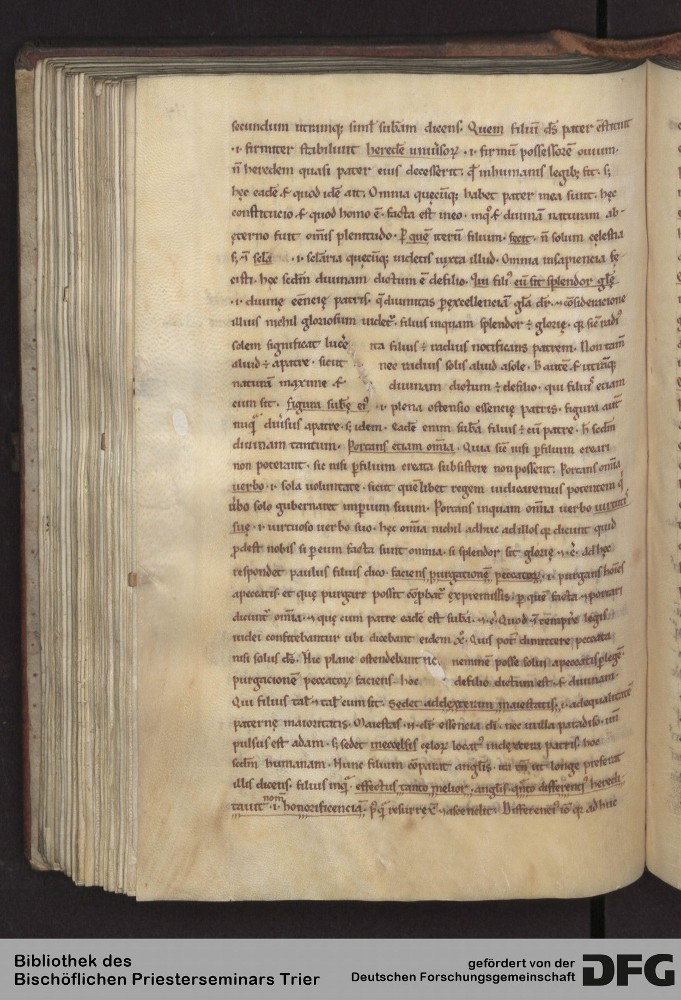 secundum utrumq; simul subam dicens. Quem filiū ds pater cstituit
.i. firmiter stabiliuit heredē uniūsorꝝ .i. firmū possessorē ouium.
n̄ heredem quasi pater eius decesserit. qđ in humanis legib; fit. s;
hęc eadē ł quod idē ait. Omnia quęcūq; habet pater mea sunt. hęc
constitucio ł quod homo ē. facta est in eo. inq̄ ł diuinā naturam ab
ęterno fuit omīs plenitudo. P quē iterū filium. fecit. n̄ solum cęlestia
s; ⁊ scla .i. sclaria quęcūq; uidetis iuxta illud. Omnia in sapiencia fe
cisti. hęc scdm diuinam dictum ē de filio. Qui filiꝰ cū sit splendor glę
.i. diuinę eēncię patris. q̄ diuinitas p excellenciā gla dr. ⁊ c̄sideracione
illius nichil gloriosum uidet᷑. filius inquam splendor ÷ glorię. qꝛ sic radiꝰ
solem significat lucē ita filius ÷ radius notificans patrem. Non tam̄
aliud ÷ a patre. sicut nec radius solis aliud a sole. h̄ autē ł utrāq;
naturā maxime ł diuinam dictum ÷ de filio. qui filiꝰ etiam
cum sit. figura subę eiꝰ .i. plena ostensio essencię patris. figura aūt
nūq̄ diūsus a patre. s; idem. eadē enim suba filius ÷ cū patre. h̄ scdm
diuinam tantum. Portans etiam omīa. Quia sic nisi p filium creari
non poterant. sic nisi p filium creata subsistere non possent. Portans omīa
uerbo .i. sola uoluntate. sicut quēlibet regem iudicaremus potentem q̄
ūbo solo gubernaret imperium suum. Portans inquam omīa uerbo uirtutis
suę .i. uirtuoso uerbo suo. hęc omīa nichil adhuc ad illos qꝛ dicunt quid
pdest nobis si p eum facta sunt omnia. si splendor sit glorię ⁊ c̄. ad hęc
respondet paulus filius dico. faciens purgationē peccatorꝝ .i. purgans hoīes
a peccatis. et que purgare possit cōpbat᷑ ex premissis. p quē facta ⁊ portari
dicunt᷑ omīa. ⁊ que cum patre eadē est suba. ⁊ c̄. Quod ⁊ tempre legis
iudei confitebantur ubi dicebant eidem xp̄o. Quis pot dimittere peccata
nisi solus ds. Hic plane ostendebant neminē posse solui a peccatis p legē.
purgacionē peccatorꝝ faciens. hoc de filio dictum est. ł diuinam.
Qui filius tal̄ ⁊ tal̄ cum sit. sedet ad dexteram maiestatis .i. ad equalitatē
paternę maioritatis. Maiestas .n. dr essencia di. nec in illa paradiso. un̄
pulsus est adam. s; sedet in excelsis cęlorꝝ locatꝰ in dextera patris. hoc
scdm humanam. Hunc filium cōparat anglis. ita tn̄ ut longe preferat
illis dicens. filius inq̄. effectus tanto melior. anglis. q̄nto differentiꝰ heredi
tauit nom̄ .i. honorificenciā. p̄q̄ resurrex̄ ⁊ ascendit. Differenciꝰ io qꝛ ad huc
Bibliothek des
Bischöflichen Priesterseminars Trier
gefördert von der
Deutschen Forschungsgemeinschaft
DFG